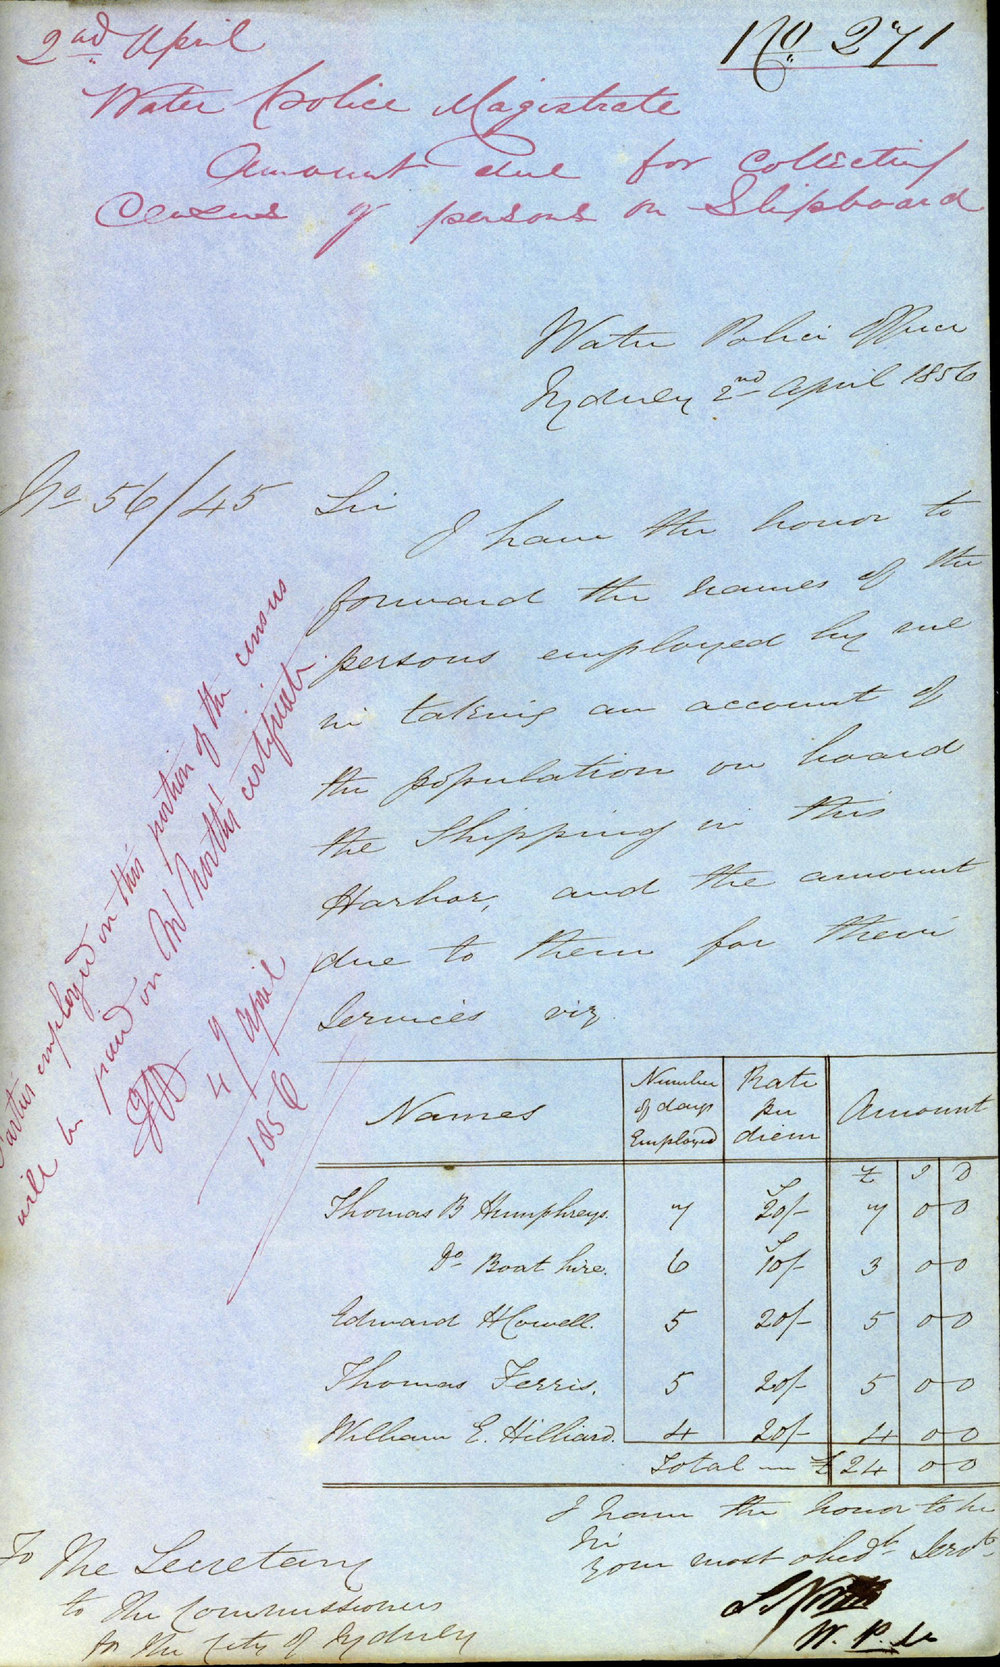 2nd April
No. 271
Water Police Magistrate
Amount due for collecting
Census of persons on Shipboard
Water Police Office
Sydney 2nd April 1856
No 56/45
Sir
I have the honor to
forward the names of the
persons employed by me
in taking an account of
the population on board
the Shipping in this
Harbor, and the amount
due to them for their
Services viz
Parties employed on this portion of the census
will be paid on Mr North's certificate
4 April
1856
Names
Number of days Employed
Rate per diem
Amount
£ S D
Thomas B Humphreys. 7 20/- 7 0 0
Do Boat hire. 6 10/- 3 0 0
Edward H Cowell. 5 20/- 5 0 0
Thomas Ferris. 5 20/- 5 0 0
William E. Hilliard. 4 20/- 4 0 0
Total — £ 24 0 0
I have the honor to be
Sir
your most obedt Servt
S North
W. P. M
To The Secretary
to the Commissioners
for the City of Sydney